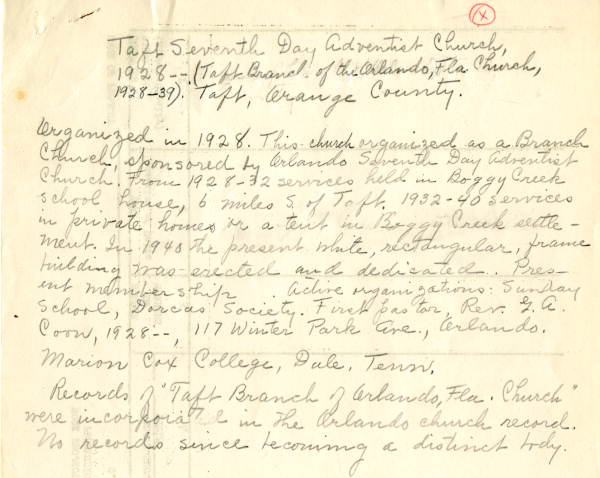 X
Taft Seventh Day Adventist Church,
1928--. (Taft Branch of the Orlando, Fla. Church,
1928-39). Taft, Orange County.
Organized in 1928. This church organized as a Branch
Church, sponsored by Orlando Seventh Day Adventist
Church. From 1928-32 services held in Boggy Creek
School House, 6 miles S. of Taft. 1932-40 services
in private homes or a tent in Boggy Creek settle-
ment. In 1940 the present white, rectangular, frame
building was erected and dedicated.. Pres-
ent membership . Active organizations: Sunday
School, Dorcas Society. First pastor, Rev. G. A.
Coon, 1928--, 117 Winter Park Ave., Orlando.
Marion Cox College, Dale, Tenn.
Records of "Taft Branch of Orlando, Fla. Church"
were incorporated in The Orlando church record.
No records since becoming a distinct body.